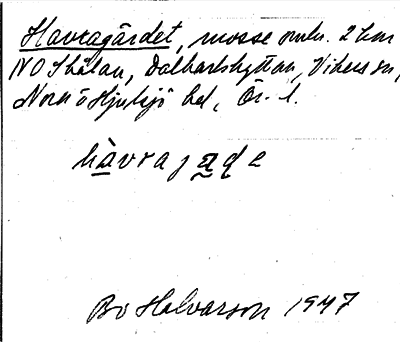 Havragärdet, mosse omkr. 2 km
NO Skålan, Dalkarlshyttan, Vikers sn,
Nora o Hjulsjö bd, Ör. l.
hàvrajade
Bo Halvarson 1947